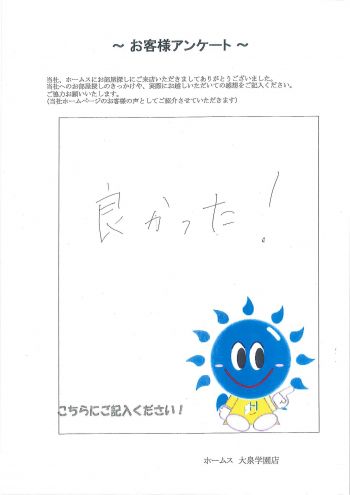 ～ お客様アンケート ～
当社、ホームスにお部屋探しにご来店いただきましてありがとうございました。
当社へのお部屋探しのきっかけや、実際にお越しいただいての感想をご記入ください。
ご協力お願いいたします。
(当社ホームページのお客様の声としてご紹介させていただきます)
良かった！
H
こちらにご記入ください！
ホームス 大泉学園店